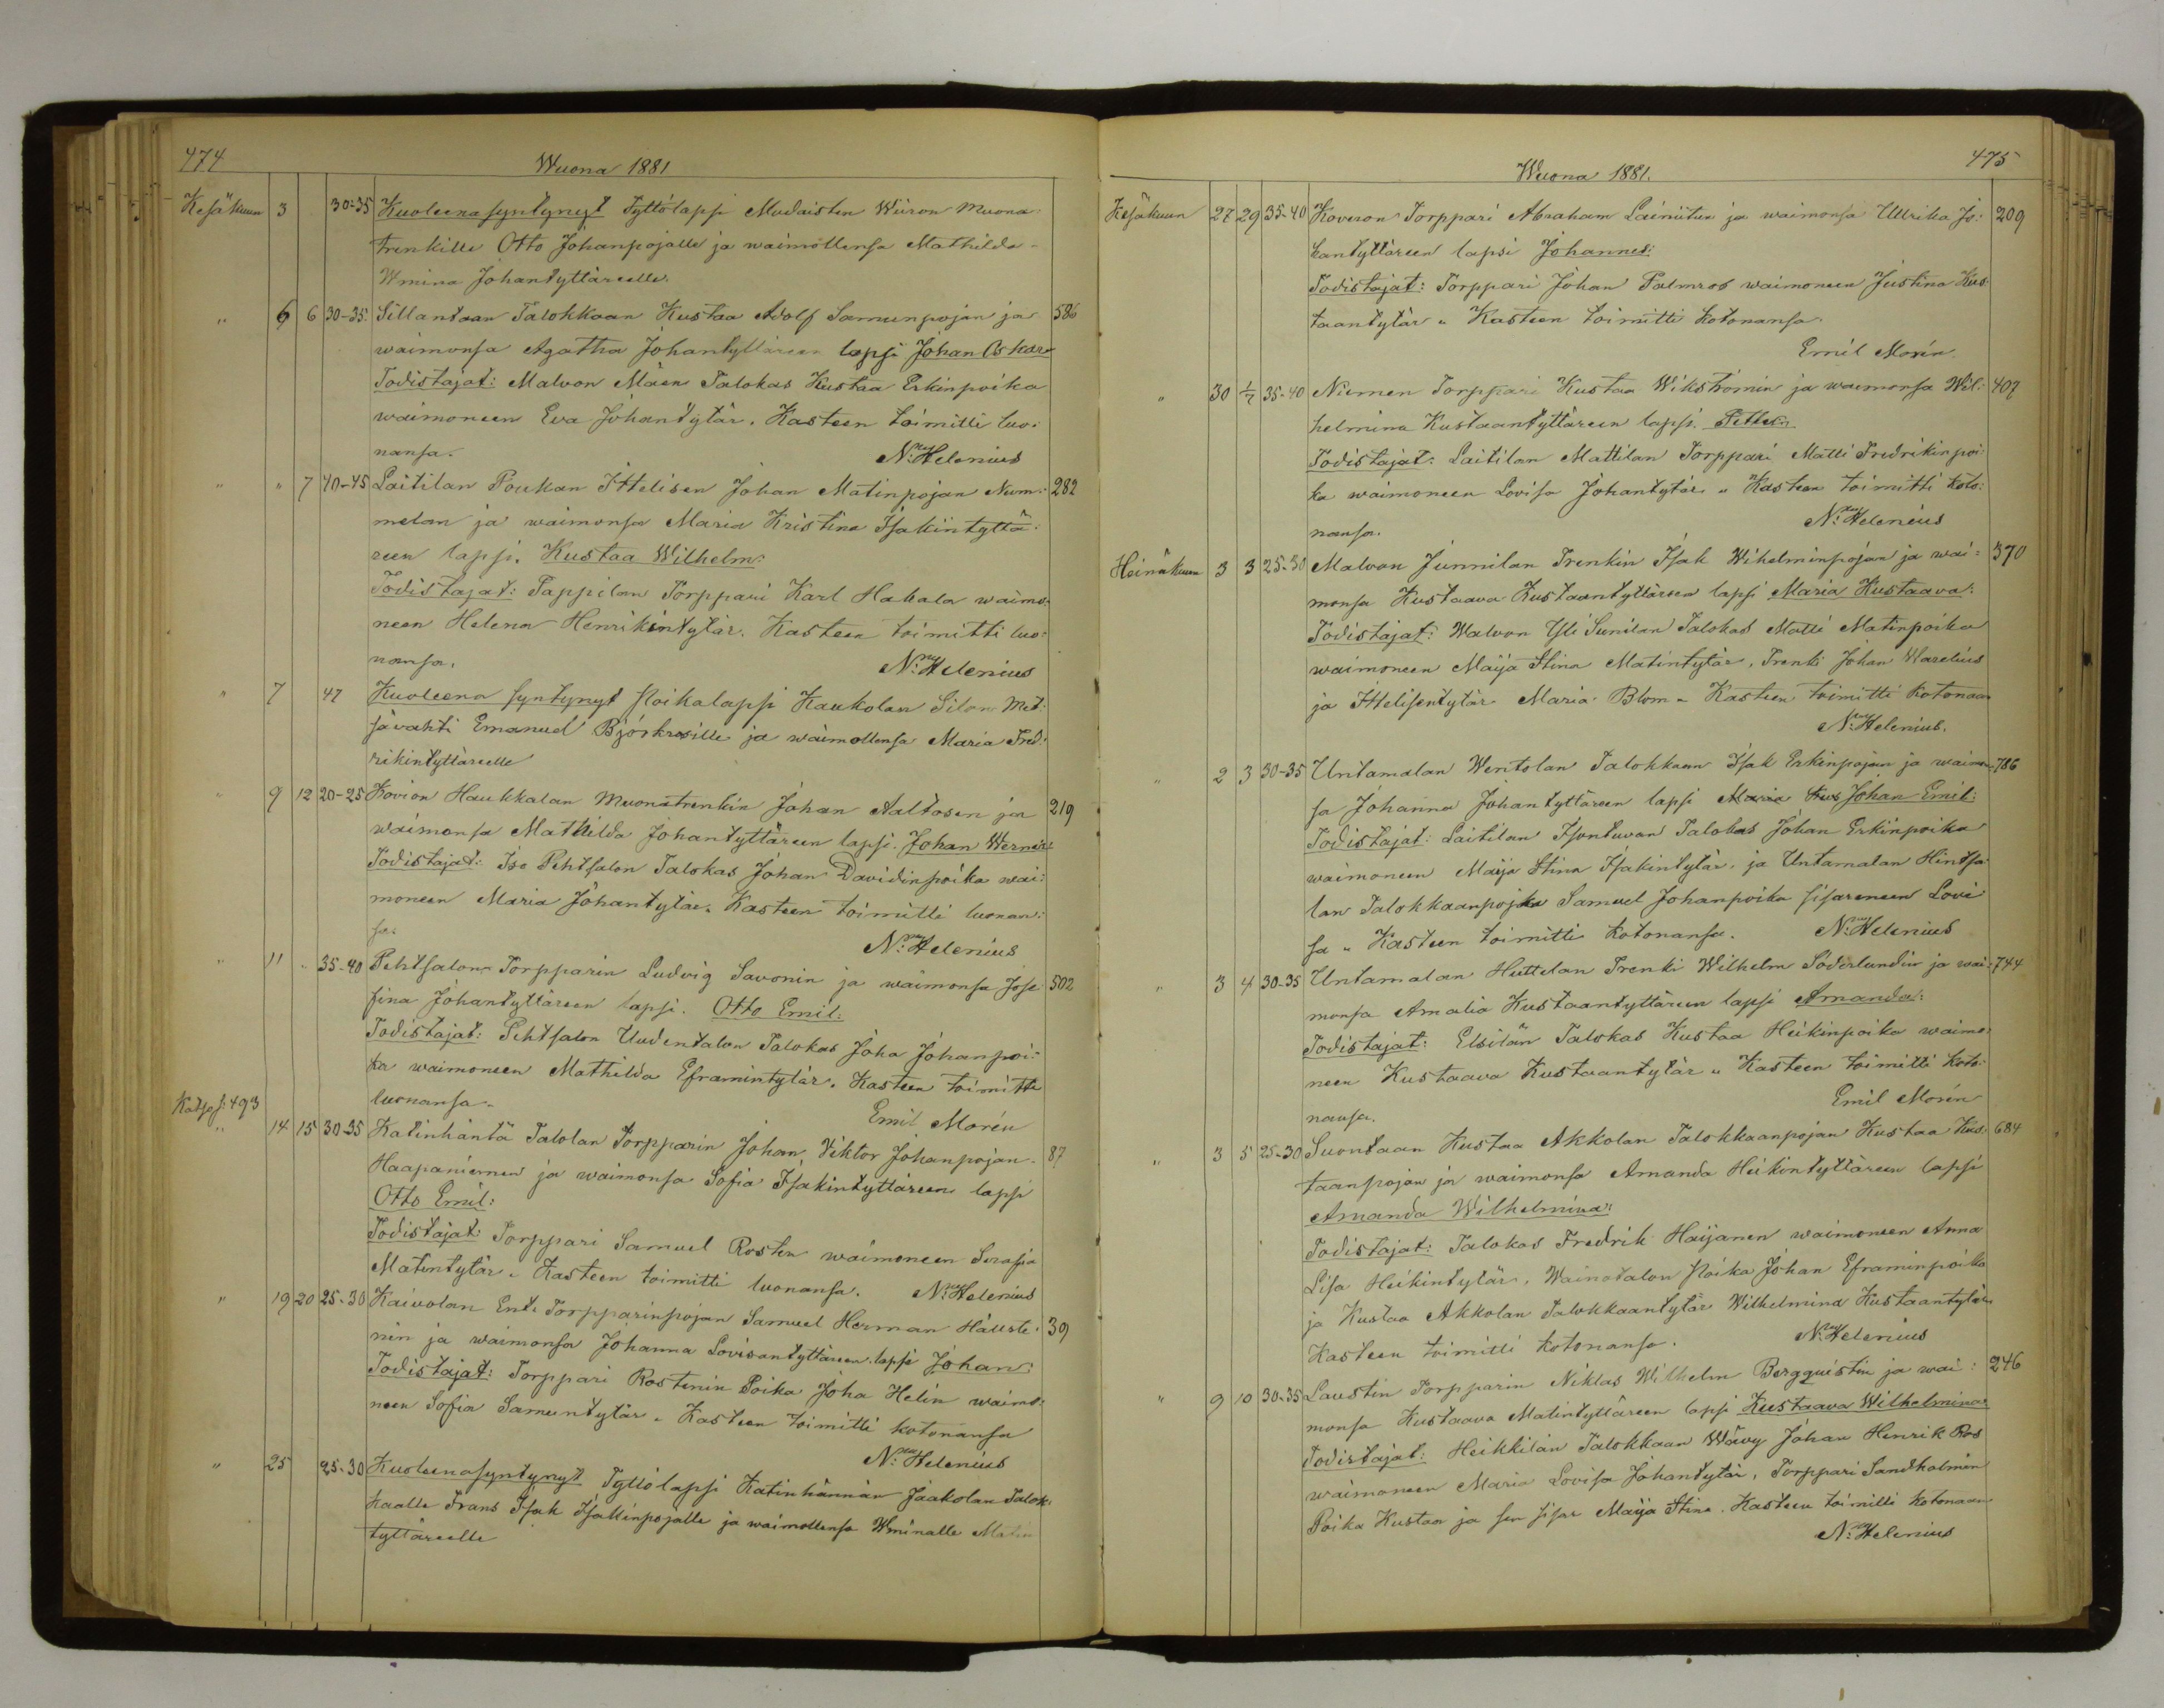 474
Wuona 1881
Kesäkuun 3 30-35 Kuoleena syntynyt Tyttölapsi Mudaisten Wiiron Muona-
trenkille Otto Johanpojalle ja waimollensa Mathilda-
Wmina Johantyttäreelle.
" 6 6 30-35. Sillantaan Talokkaan Kustaa Adolf Samunpojan ja 586
waimonsa Agatha Johantyttäreen lapsi Johan Oskar
Todistajat: Malvon Mäen Talokas Kustaa Erkinpoika
waimoneen Eva Johantytär. Kasteen toimitti luo-
nansa. N: Helenius
" " 7 40-45 Laitilan Poukan Itselisen Johan Matinpojan Num- 282
melan ja waimonsa Maria Kristina Isakintyttä-
reen lapsi. Kustaa Wilhelm:
Todistajat: Pappilan Torppari Karl Hakala waimo-
neen Helena Henrikintytär. Kasteen toimitti luo-
nansa. N: Helenius
" 7 47 Kuoleena syntynyt Poikalapsi Kaukolan Silon Met-
sävahti Emanuel Björkrosille ja waimollensa Maria Fred-
rikintyttäreelle
" 9 12 20-25 Kovion Haukkalan Muonatrenkin Johan Aaltosen ja 219
waimonsa Mathilda Johantyttäreen lapsi. Johan Werner:
Todistajat: Iso Pehtsalon Talokas Johan Davidinpoika wai-
moneen Maria Johantytär. Kasteen toimitti luonan-
sa. N: Helenius
" 11 " 35-40 Pehtsalon Torpparin Ludvig Savonin ja waimonsa Jose- 502
fina Johantyttäreen lapsi. Otto Emil:
Todistajat: Pehtsalon Uudentalon Talokas Joha Johanpoi-
ka waimoneen Mathilda Eframintytär. Kasteen toimitti
luonansa. Emil Morén
Katso s: 493
" 14 15 30-35 Katinhäntä Talolan Torpparin Johan Viktor Johanpojan 87
Haapaniemen ja waimonsa Sofia Isakintyttäreen lapsi
Otto Emil:
Todistajat: Torppari Samuel Rosten waimoneen Serafia
Matintytär. Kasteen toimitti luonansa. N: Helenius
" 19 20 25-30 Kaivolan Ent. Torpparinpojan Samuel Herman Hallste- 39
nin ja waimonsa Johanna Lovisantyttäreen lapsi Johan:
Todistajat: Torppari Rostenin Poika Joha Helin waimo-
neen Sofia Samuntytär. Kasteen toimitti kotonansa
N: Helenius
" 25 25-30 Kuoleena syntynyt Tyttölapsi Katinhännän Jaakolan Talok-
kaalle Frans Isak Isakinpojalle ja waimollensa Wminalle Matin
tyttäreelle
475
Wuona 1881.
Kesäkuun 27 29 35-40 Koveron Torppari Abraham Lainiitun ja waimonsa Ulrika Jo- 209
hantyttäreen lapsi Johannes:
Todistajat: Torppari Johan Palmros waimoneen Justina Kus-
taantytär " Kasteen toimitti kotonansa.
Emil Morén.
" 30 1/7 35-40 Niemen Torppari Kustaa Wikströmin ja waimonsa Wil- 407
helmina Kustaantyttäreen lapsi.
Todistajat: Laitilan Mattilan Torppari Matti Fredrikinpoi-
ka waimoneen Lovisa Johantytär " Kasteen toimitti koto-
nansa. N: Helenius
Heinäkuun 3 3 25-30 Malvon Junnilan Trenkin Isak Wihelminpojan ja wai- 370
monsa Kustaava Kustaantyttäreen lapsi Maria Kustaava:
Todistajat: Walvon Yli Sunilan Talokas Matti Matinpoika
waimoneen Maija Stina Matintytär, Trenki Johan Warelius
ja Itselisentytär Maria Blom " Kasteen toimitti kotonaan
N: Helenius.
" 2 3 30-35 Untamalan Wentolan Talokkaan Isak Erkinpojan ja waimon- 786
sa Johanna Johantyttäreen lapsi Maria Kus Johan Emil:
Todistajat: Laitilan Isontuvan Talokas Johan Erkinpoika
waimoneen Maija Stina Isakintytär, ja Untamalan Hintsa-
lan Talokkaanpojka Samuel Johanpoika sisareneen Lovi-
sa " Kasteen toimitti kotonansa. N: Helenius
" 3 4 30-35 Untamalan Huttelan Trenki Wilhelm Söderlundin ja wai- 744
monsa Amalia Kustaantyttäreen lapsi Amanda:
Todistajat: Elsilän Talokas Kustaa Heikinpoika waimo-
neen Kustaava Kustaantytär " Kasteen toimitti koto-
nansa. Emil Morén
" 3 5 25-30 Suontaan Kustaa Akkolan Talokkaanpojan Kustaa Kus- 684
taanpojan ja waimonsa Amanda Heikintyttäreen lapsi
Amanda Wilhelmina:
Todistajat: Talokas Fredrik Haijanen waimoneen Anna
Lisa Heikintytär, Wainotalon Poika Johan Eframinpoika
ja Kustaa Akkolan Talokkaantytär Wilhelmina Kustaantytär
Kasteen toimitti kotonansa. N: Helenius
" 9 10 30-35 Laustin Torpparin Niklas Wilhelm Bergquistin ja wai- 246
monsa Kustaava Matintyttäreen lapsi Kustaava Wilhelmina:
Todistajat: Heikkilän Talokkaan Wävy Johan Henrik Ros
waimoneen Maria Lovisa Johantytär, Torppari Sandholmin
Poika Kustaa ja sen sisar Maija Stina. Kasteen toimitti kotonaan
N: Helenius